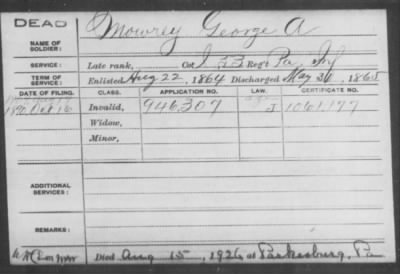 DEAD
Mowrey George A
NAME OF SOLDIER:
SERVICE: Late rank, Co. I 53 Reg't Pa. Inf
TERM OF SERVICE: Enlisted Aug 22, 1864 Discharged May 31, 1865
DATE OF FILING. CLASS. APPLICATION NO. LAW. CERTIFICATE NO.
1890 Oct 16 Invalid, 946307 J 1061,177
Widow,
Minor,
ADDITIONAL SERVICES:
REMARKS:
Died Aug 15, 1926 at Parkesburg, Pa